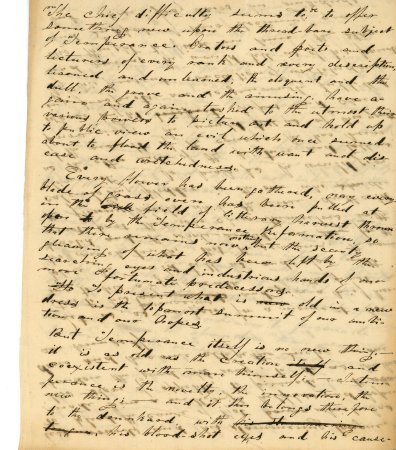 The Chief difficulty seems to be to offer
something new upon the thread-bare subject
of Temperance. Orators and poets and
lecturers of every rank and every description,
learned and unlearned, the elegant and the
dull, the grave and the amusing have a-
gain and again tasked to the utmost their
various powers to picture out and hold up
to public view an evil which once seemed
about to flood the land with want and dis-
ease and wretchedness.
Every flower has been gathered, nay every
blade of grass even has been picked at
in the field of literary harvest thrown
open by the Temperance Reformation, so
that there remains now but the scanty
gleaning of what has been left by the
searching eyes and industrious hands of our
more fortunate predecessors.
To present what is old in a new
dress is the utmost summit of our ambi-
tion and our hopes.
But Temperance itself is no new thing—
it is as old as the creation and
coexistent with man himself— Intem-
perance is the novelty, the innovation, the
new thing— and it thus belongs therefore
to the drunkard with
his blood-shot eyes and his cause-